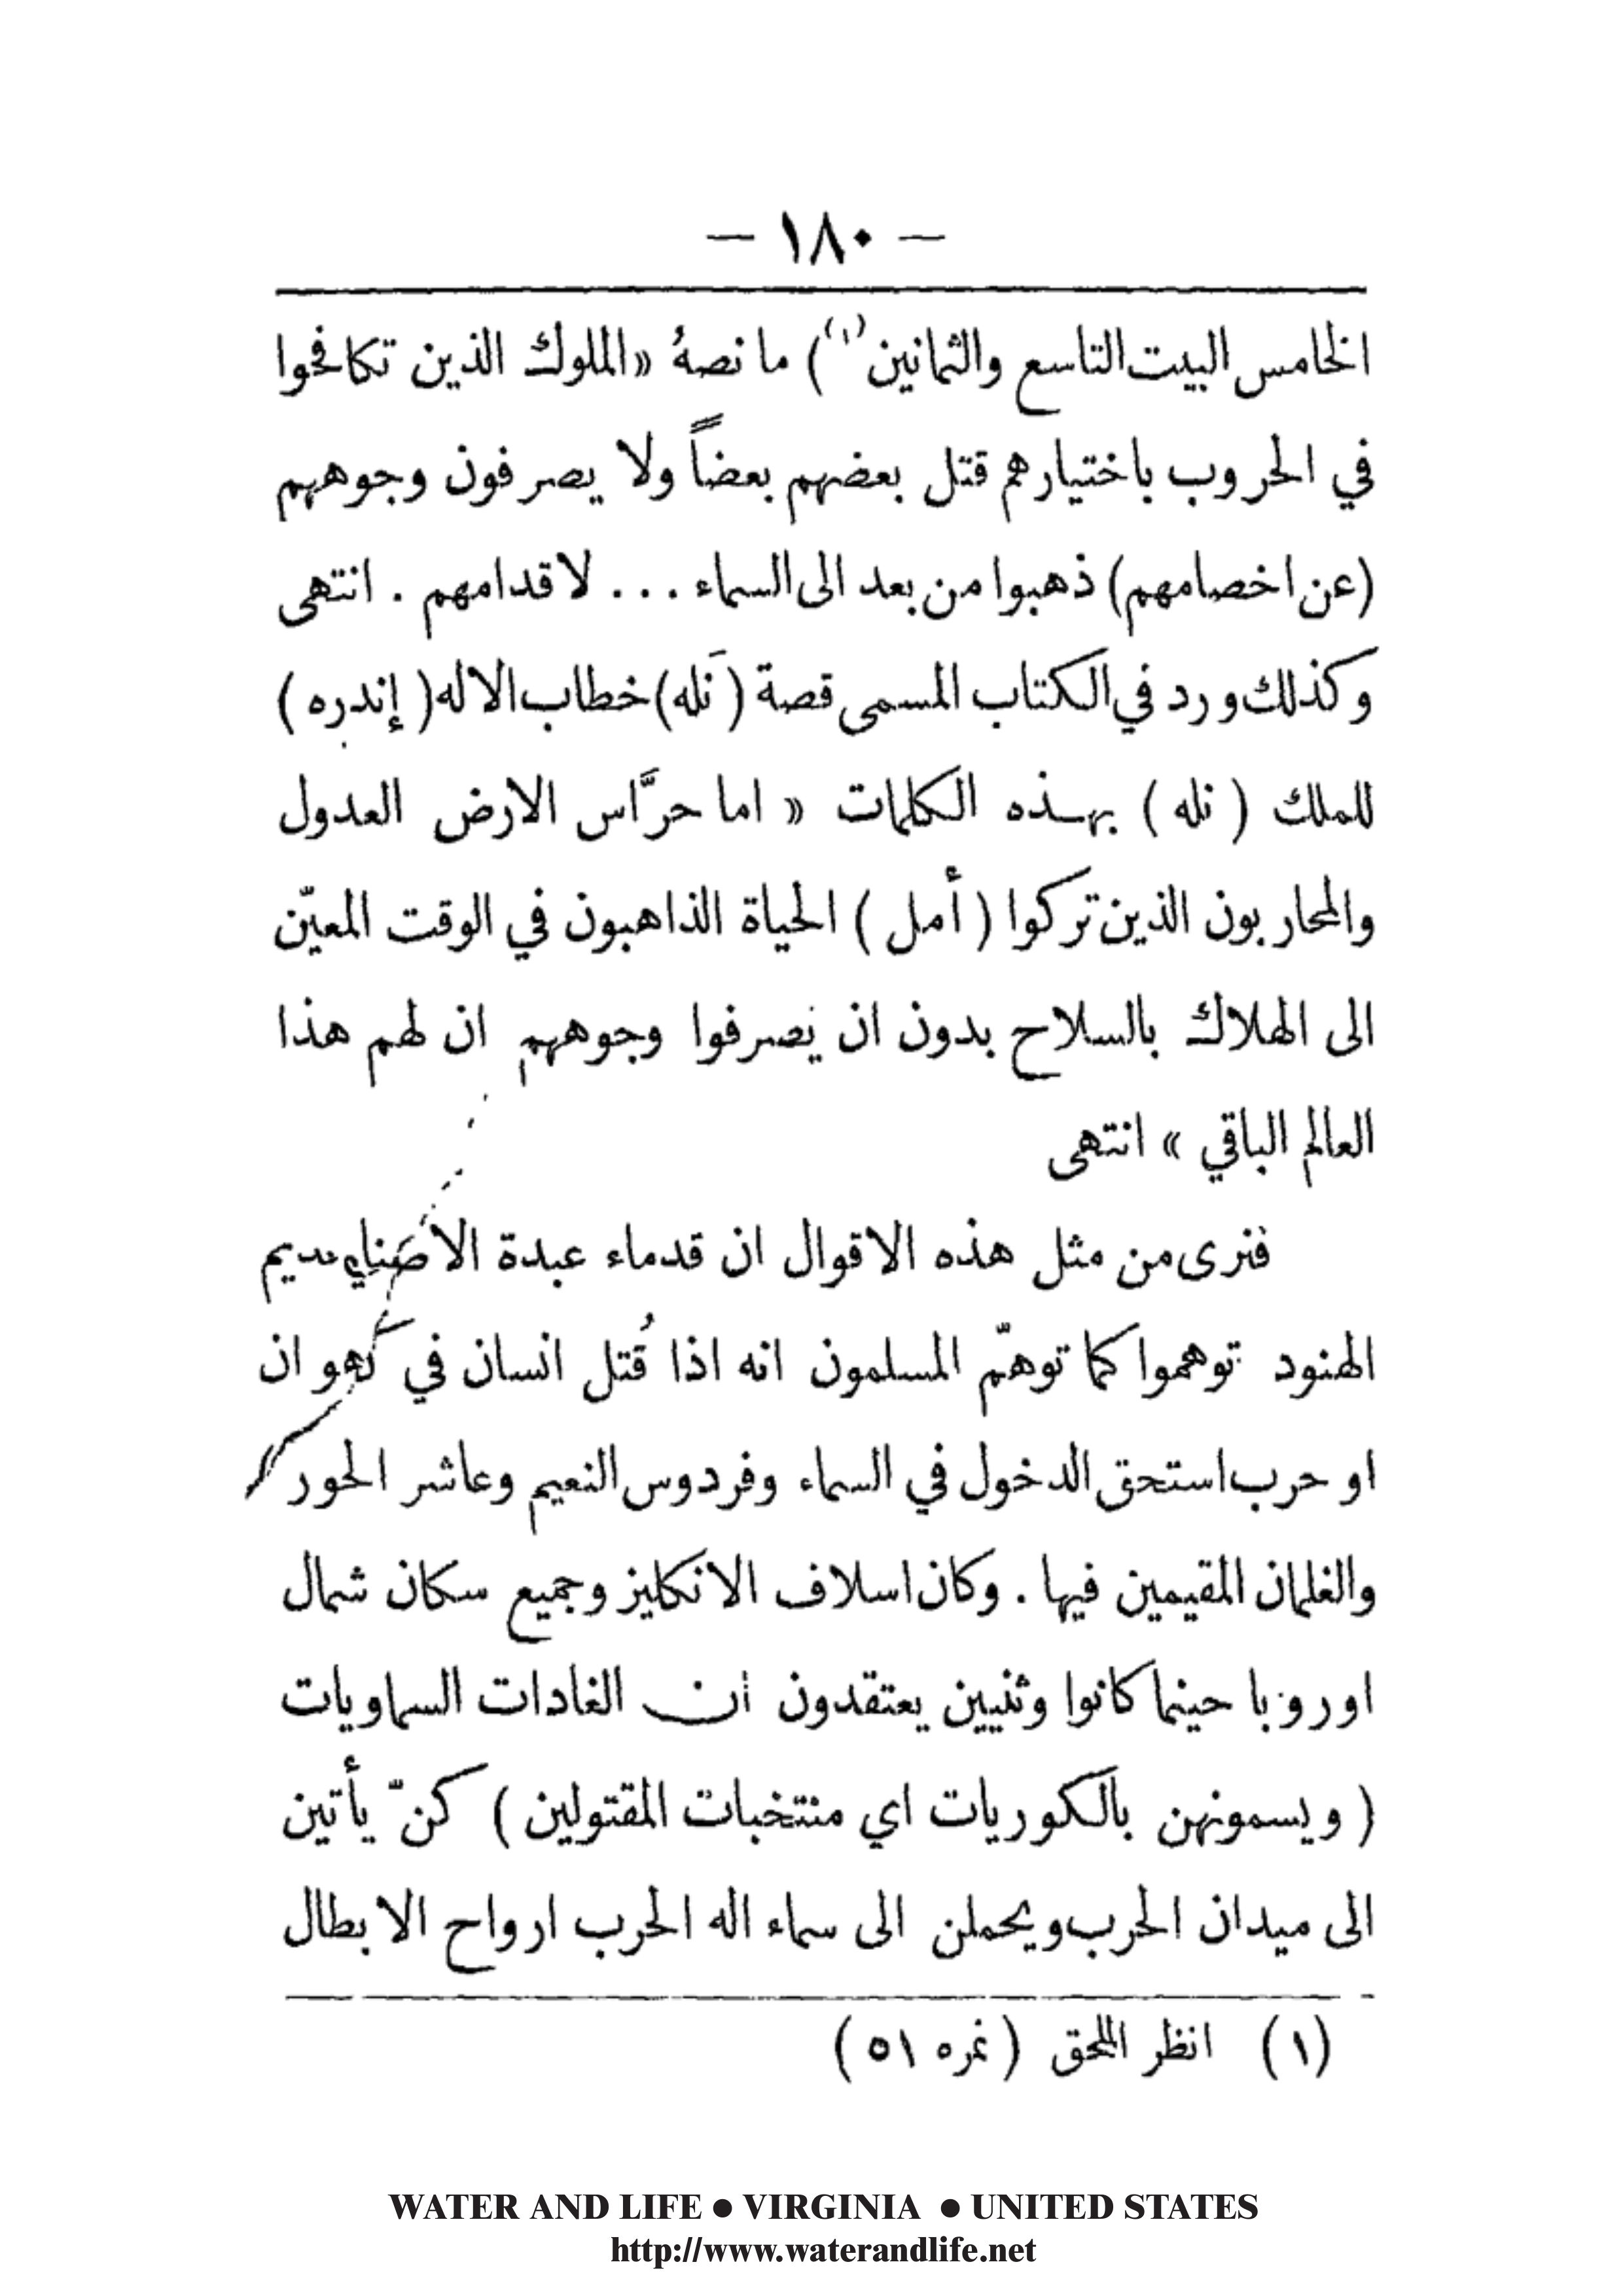 — ١٨٠ —
الخامس البيت التاسع والثمانين(١)) ما نصهُ «الملوك الذين تكافحوا
في الحروب باختيارهم قتل بعضهم بعضاً ولا يصرفون وجوههم
(عن اخصامهم) ذهبوا من بعد الى السماء ... لاقدامهم . انتهى
وكذلك ورد في الكتاب المسمى قصة (نَله) خطاب الاله (إندره)
للملك (نله) بهذه الكلمات « اما حرَّاس الارض العدول
والمحاربون الذين تركوا (أمل) الحياة الذاهبون في الوقت المعيّن
الى الهلاك بالسلاح بدون ان يصرفوا وجوههم ان لهم هذا
العالم الباقي » انتهى
فنرى من مثل هذه الاقوال ان قدماء عبدة الاصنام
الهنود توهموا كما توهّم المسلمون انه اذا قُتل انسان في ان
او حرب استحق الدخول في السماء وفردوس النعيم وعاشر الحور
والغلمان المقيمين فيها . وكان اسلاف الانكليز وجميع سكان شمال
اوروبا حينما كانوا وثنيين يعتقدون ان الغادات السماويات
( ويسمونهن بالكوريات اي منتخبات المقتولين ) كنّ يأتين
الى ميدان الحرب ويحملن الى سماء اله الحرب ارواح الابطال
(١) انظر الملحق (نمره ٥١)
WATER AND LIFE ● VIRGINIA ● UNITED STATES
http://www.waterandlife.net